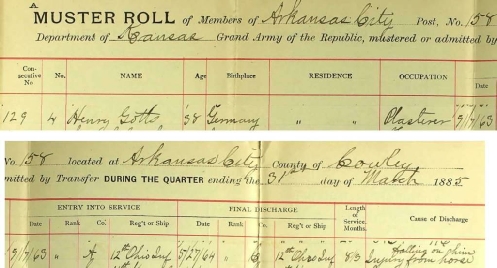 A
MUSTER ROLL of Members of Arkansas City Post, No. 158
Department of Kansas Grand Army of the Republic, mustered or admitted by
Con-
secutive
No
No.
NAME
Age
Birthplace
RESIDENCE
OCCUPATION
Date
129 4 Henry Gotts 38 Germany " " Plasterer 9/7/63
No. 158 located at Arkansas City, County of Cowley
mitted by Transfer DURING THE QUARTER ending the 31st day of March 1885
ENTRY INTO SERVICE FINAL DISCHARGE Length
of
Service.
Months. Cause of Discharge
Date Rank Co. Reg't or Ship Date Rank Co. Reg't or Ship
9/7/63 " A 12th Ohio Inf 5/27/64 " 12th Ohio Inf
falling on him
Injury from horse